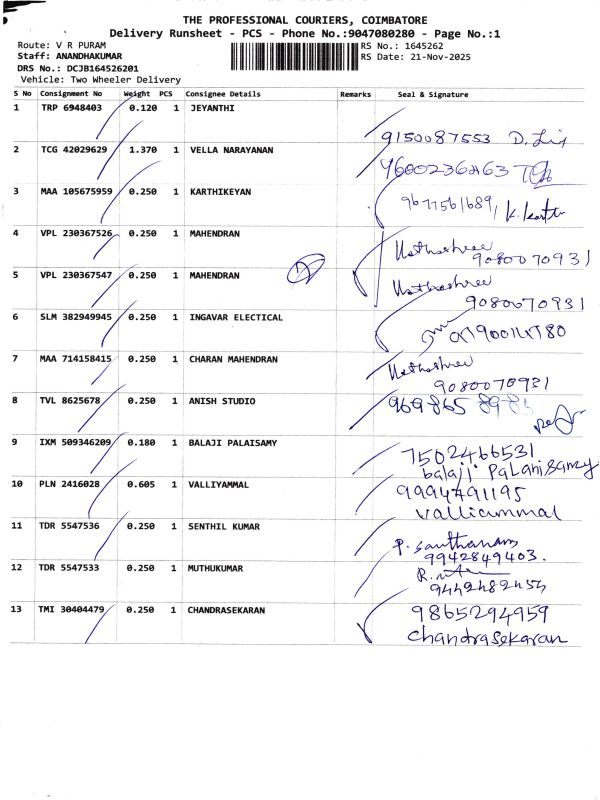 THE PROFESSIONAL COURIERS, COIMBATORE
Delivery Runsheet - PCS - Phone No.:9047080280 - Page No.:1
Route: V R PURAM RS No.: 1645262
Staff: ANANDHAKUMAR RS Date: 21-Nov-2025
DRS No.: DCJB164526201
Vehicle: Two Wheeler Delivery
S No Consignment No Weight PCS Consignee Details Remarks Seal & Signature
1 TRP 6948403 0.120 1 JEYANTHI
9150087553
2 TCG 42029629 1.370 1 VELLA NARAYANAN
9600236263
3 MAA 105675959 0.250 1 KARTHIKEYAN
9677561689,
4 VPL 230367526 0.250 1 MAHENDRAN
9080070931
5 VPL 230367547 0.250 1 MAHENDRAN
9080070931
6 SLM 382949945 0.250 1 INGAVAR ELECTICAL
7 MAA 714158415 0.250 1 CHARAN MAHENDRAN
9080070931
8 TVL 8625678 0.250 1 ANISH STUDIO
9 IXM 509346209 0.180 1 BALAJI PALAISAMY
7502466531
balaji Palanisamy
10 PLN 2416028 0.605 1 VALLIYAMMAL
9994791195
valliammal
11 TDR 5547536 0.250 1 SENTHIL KUMAR
P. Santhanam
9942849403.
12 TDR 5547533 0.250 1 MUTHUKUMAR
9442482454
13 TMI 30404479 0.250 1 CHANDRASEKARAN
9865294959
chandrasekaran